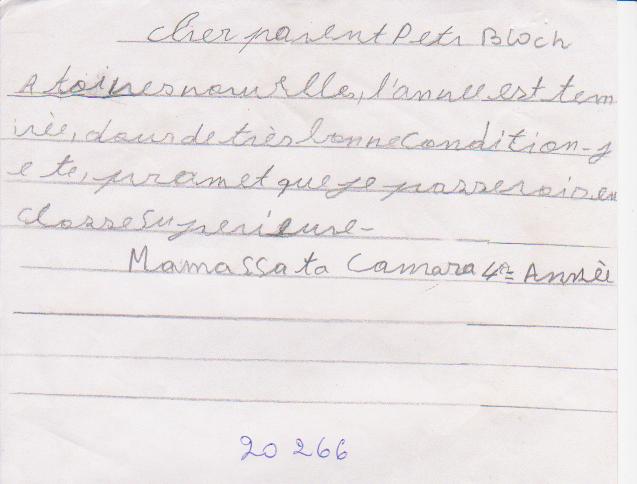 cher parent Petr Bloch
A toi mes nouvelles, l'année est tem
inée, dans de très bonne condition - j
e te, pramet que je passerais, en
classe superieure -
Mamassata Camara 4e Année
20 266